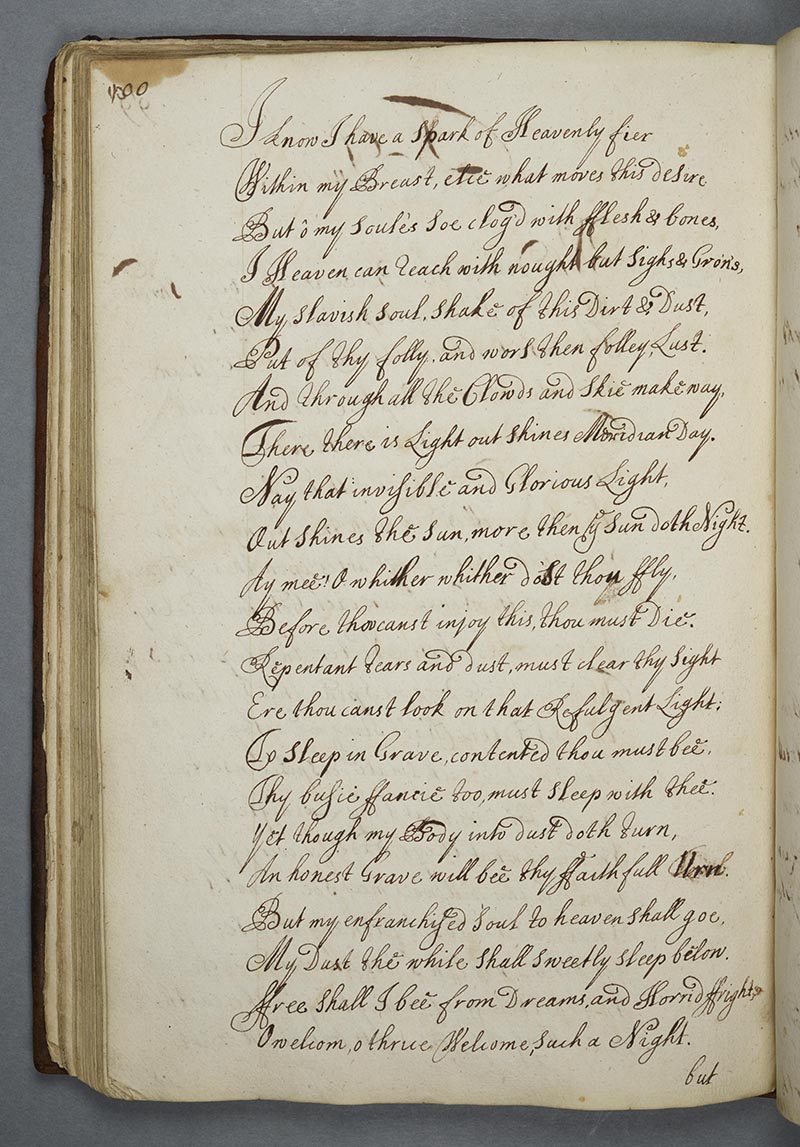 100
I know I have a spark of Heavenly fier
Within my Breast, elce what moves this desire
But ô my soule's soe clog'd with fflesh & bones,
I Heaven can reach with nought but sighs & Gron's,
My slavish soul, shake of this Dirt & Dust,
Put of thy folly, and wors then folley, Lust.
And through all the Clowds and skie make way,
There there is Light out shines Meridian Day.
Nay that invisible and Glorious Light,
Out shines the sun, more then yͤ sun doth Night.
Ay mee! O whither whither do'st thou ffly,
Before thou canst injoy this, thou must Die.
Repentant tears and dust, must clear thy sight
Ere thou canst look on that Refulgent Light:
To sleep in Grave, contented thou must bee,
Thy busie ffancie too, must sleep with thee.
Yet though my Body into dust doth turn,
An honest Grave will bee thy ffaithfull Urn.
But my enfranchised soul to heaven shall goe,
My Dust the while shall sweetly sleep below.
ffree shall I bee from Dreams, and Horrid ffrights
O welcom, o thrice Welcome, such a Night.
but